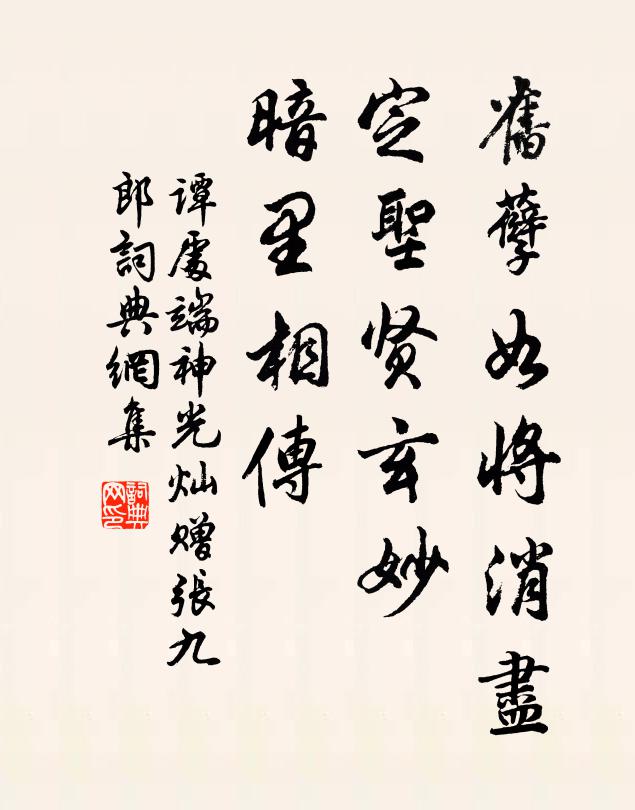 舊孽如將消盡
定聖贤玄妙
暗里相傳
谭處端神光灿赠張九
郎詞典網集
詞典
网印